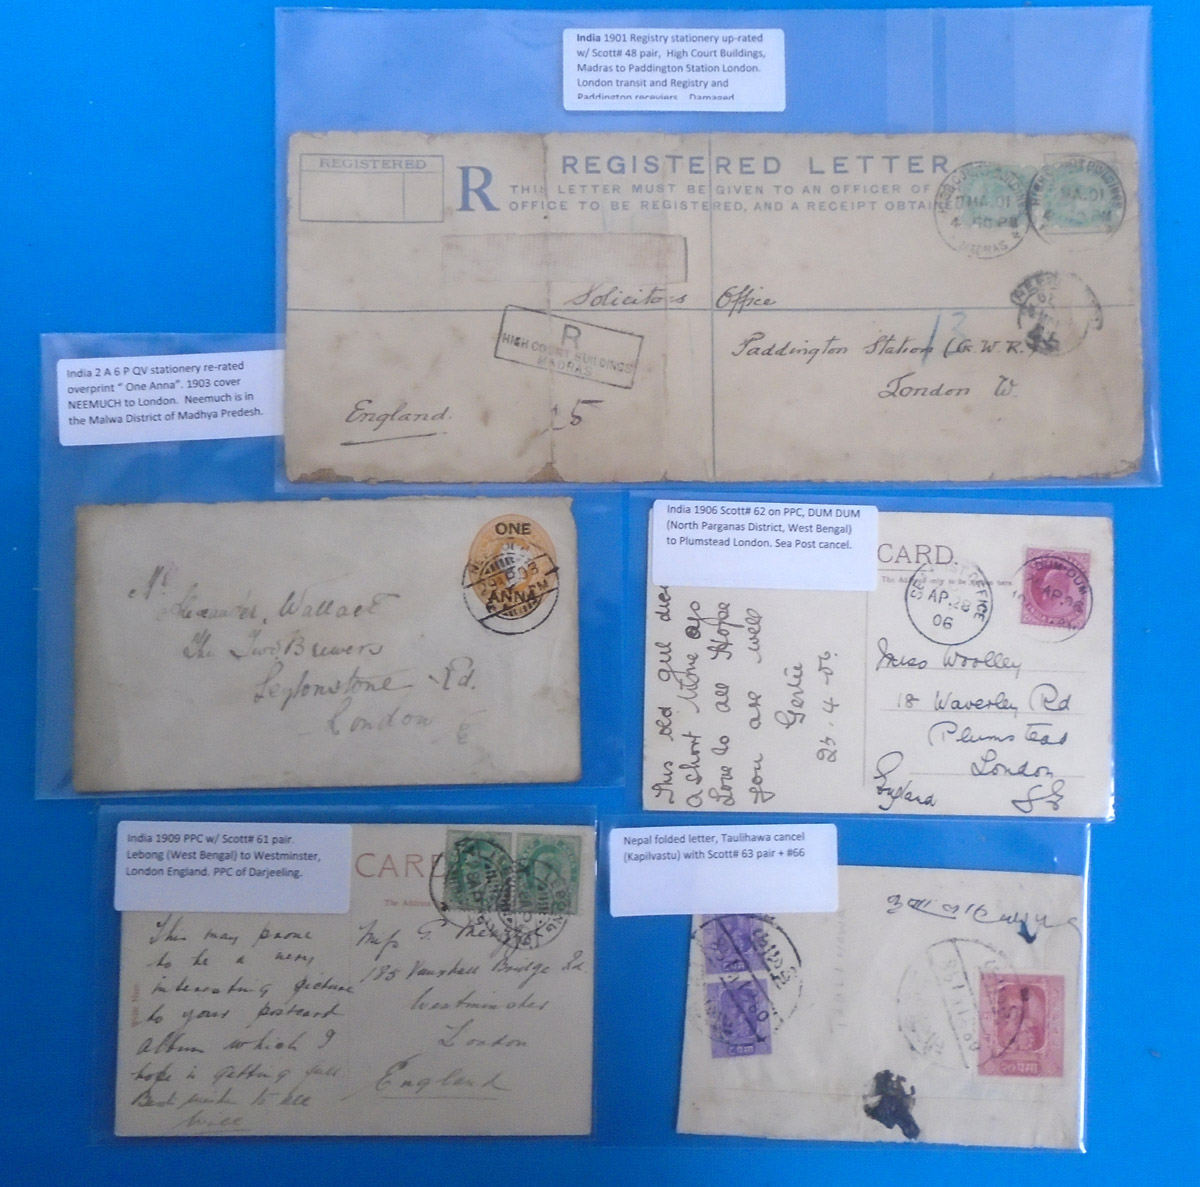 India 1901 Registry stationery up-rated
w/ Scott# 48 pair, High Court Buildings,
Madras to Paddington Station London.
London transit and Registry and
Paddington receviers. Damaged
REGISTERED
R
REGISTERED LETTER
THIS LETTER MUST BE GIVEN TO AN OFFICER OF
OFFICE TO BE REGISTERED, AND A RECEIPT OBTAIN
MA.01
MADRAS
Solicitors Office
R
HIGH COURT BUILDINGS
MADRAS
13
Paddington Station (G.W.R.)
London W.
England.
India 2 A 6 P QV stationery re-rated
overprint " One Anna". 1903 cover
NEEMUCH to London. Neemuch is in
the Malwa District of Madhya Predesh.
ONE
ANNA
Alexander Wallace
The Two Brewers
Leytonstone Rd.
London E
India 1906 Scott# 62 on PPC, DUM DUM
(North Parganas District, West Bengal)
to Plumstead London. Sea Post cancel.
CARD.
The Address only to be
SEA POST OFFICE
AP.28
06
DUM-DUM
AP.06
This old girl died
a short time ago
Love to all Hope
you are well
Gertie
23.4.06.
Miss Woolley
18 Waverley Rd
Plumstead
London
England SE
India 1909 PPC w/ Scott# 61 pair.
Lebong (West Bengal) to Westminster,
London England. PPC of Darjeeling.
CARD
The Address
LEBONG
This may prove
to be a very
interesting picture
to your postcard
album which I
hope is getting full
Best wishes to all
Will
Miss G.
185 Vauxhall Bridge Rd.
Westminster
London
England
Nepal folded letter, Taulihawa cancel
(Kapilvastu) with Scott# 63 pair + #66
२० पैसा